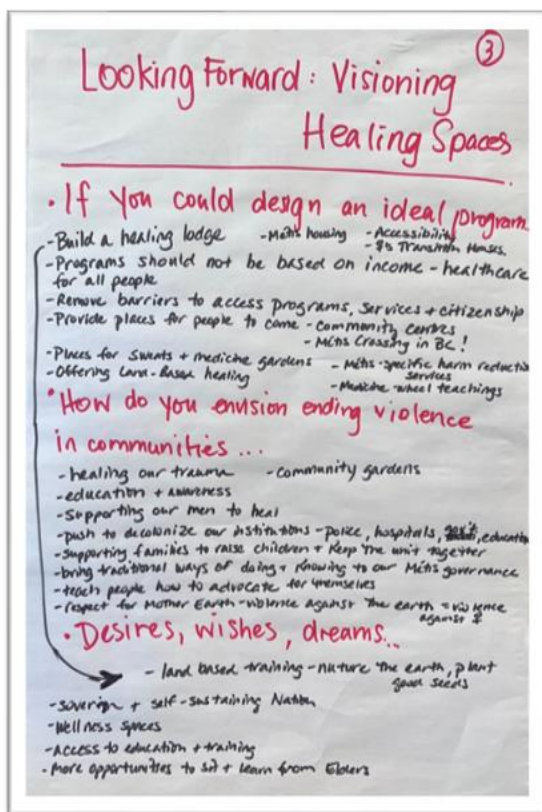 ③
Looking Forward: Visioning
Healing Spaces
• If you could design an ideal program
-Build a healing lodge -Métis housing -Accessibility
- $ to Transition Houses.
-Programs should not be based on income - healthcare
for all people
-Remove barriers to access programs, services + citizenship
-Provide places for people to come -community centres
- Métis Crossing in BC!
-Places for sweats + medicine gardens - Métis-specific harm reduction
services
-Offering Land-Based healing
-Medicine wheel teachings
• How do you envision ending violence
in communities...
-healing our trauma -community gardens
-education + awareness
-Supporting our men to heal
-push to decolonize our institutions - police, hospitals, gov't, education
-supporting families to raise children + keep the unit together
-bring traditional ways of doing + knowing to our Métis governance
-teach people how to advocate for themselves
-respect for Mother Earth -violence against the earth = violence
against ♀
• Desires, wishes, dreams...
- land based training - nuture the earth, plant
good seeds
-soverign + self-sustaining Nation
-Wellness spaces
-Access to education + training
-More opportunities to sit + learn from Elders